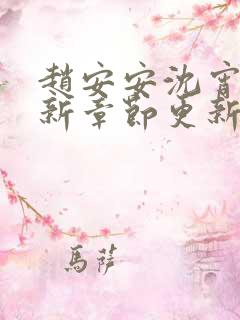 趙安安沈宵
新章節更新
馬薩